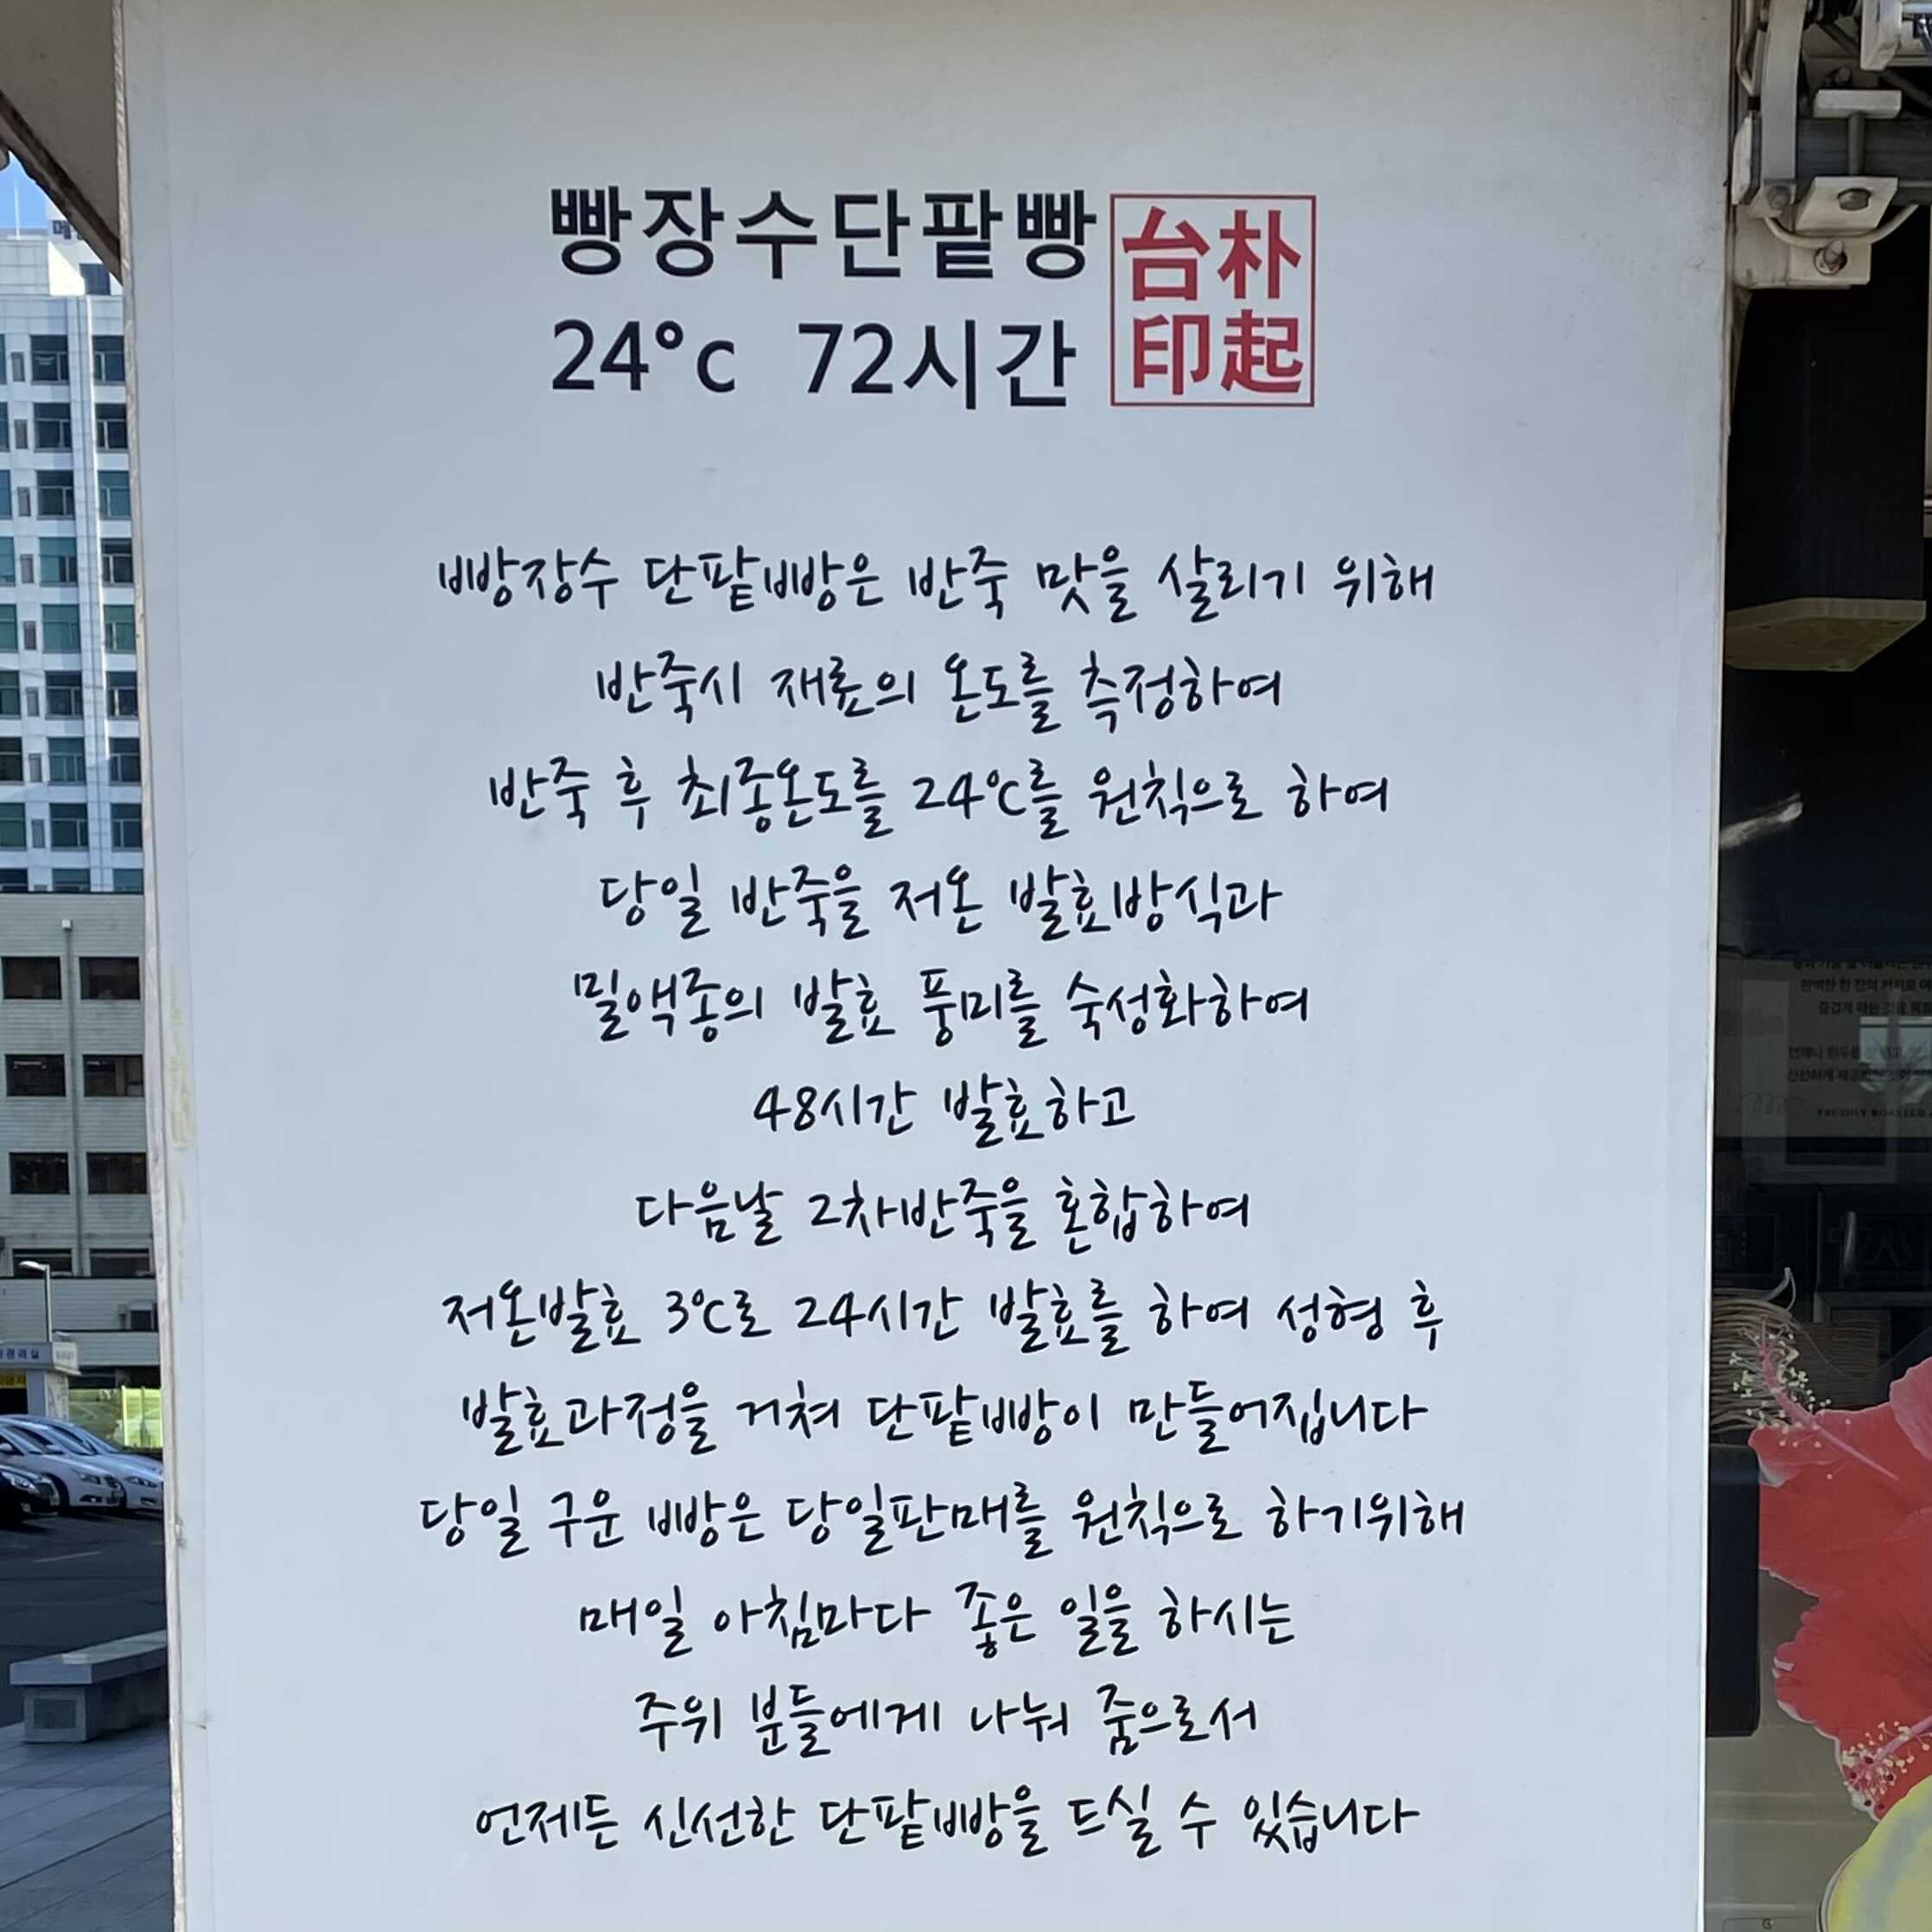 빵장수단팥빵
24°c 72시간
台朴
印起
빵장수 단팥빵은 반죽 맛을 살리기 위해
반죽시 재료의 온도를 측정하여
반죽 후 최종온도를 24℃를 원칙으로 하여
당일 반죽을 저온 발효방식과
밀액종의 발효 풍미를 숙성화하여
48시간 발효하고
다음날 2차반죽을 혼합하여
저온발효 3℃로 24시간 발효를 하여 성형 후
발효과정을 거쳐 단팥빵이 만들어집니다
당일 구운 빵은 당일판매를 원칙으로 하기위해
매일 아침마다 좋은 일을 하시는
주위 분들에게 나눠 줌으로서
언제든 신선한 단팥빵을 드실 수 있습니다